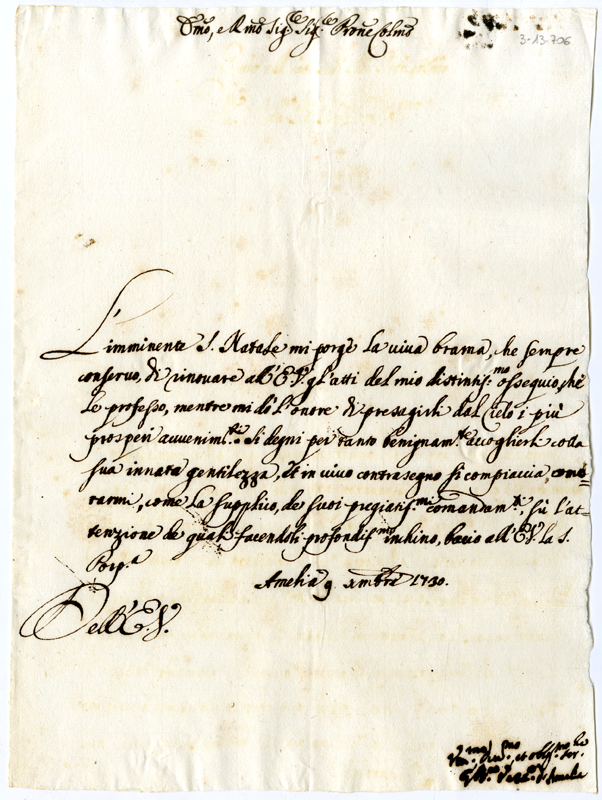 Emo, e Rmo Sig.re Sig.re Prone Colmo
3-13-706
L'imminente S. Natale mi porge la viva brama, che sempre
conservo, di rinovare all'E.V. gl'atti del mio distintis.mo ossequio, che
Le professo, mentre mi dò l'onore di presagirli dal Cielo i più
prosperi avvenim.ti Si degni per tanto benignam.te accoglierli colla
sua innata gentilezza, et in vivo contrasegno si compiaccia, ono=
rarmi, come La supplico, de suoi pregiatis.mi comandam.ti, sù l'at=
tenzione de quali facendoli profondis.mo inchino, bacio all'E.V. la S.
Porp.a
Amelia 9 Xmbre 1730.
Dell'E.V.
et obblig.mo
d'Amelia